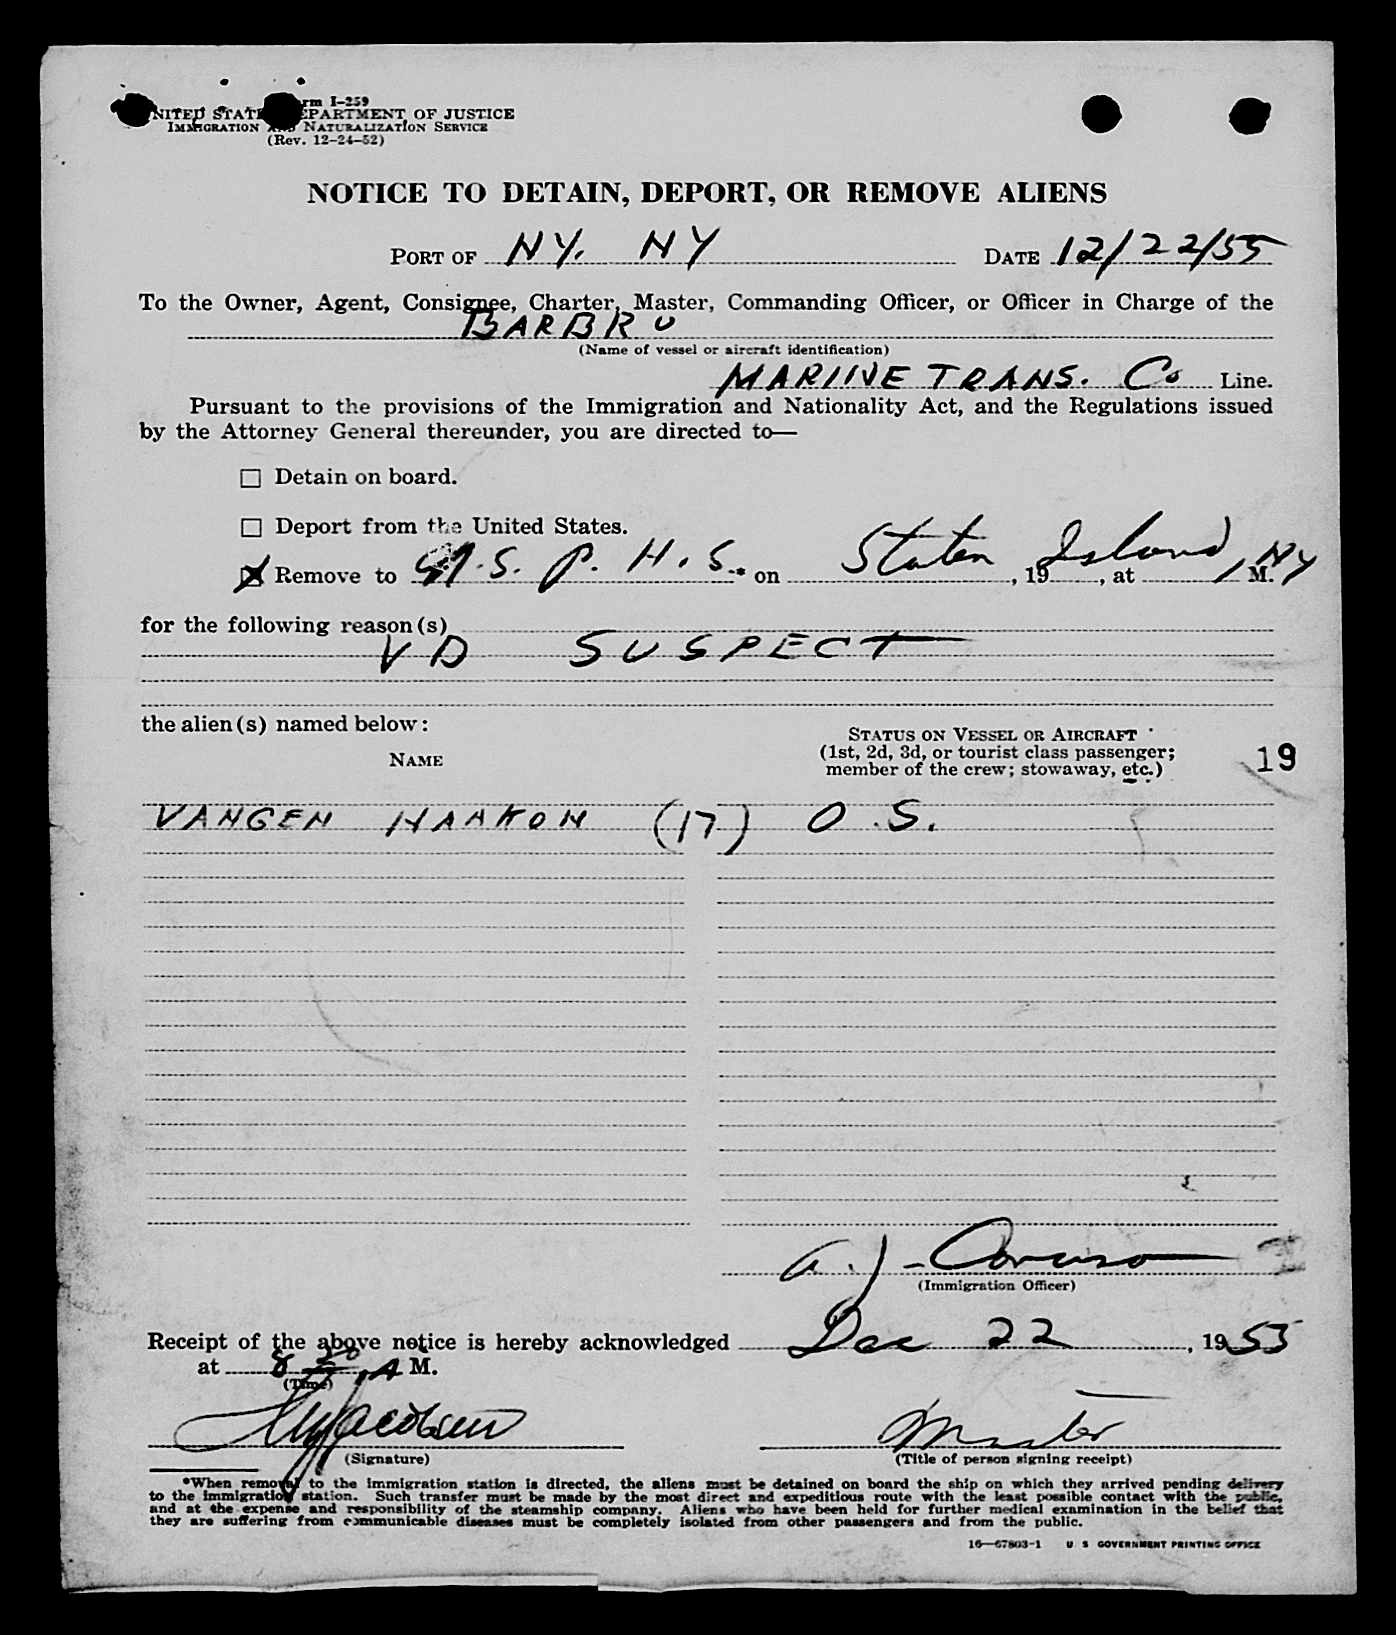 Form I-259
UNITED STATES DEPARTMENT OF JUSTICE
IMMIGRATION AND NATURALIZATION SERVICE
(Rev. 12-24-52)
NOTICE TO DETAIN, DEPORT, OR REMOVE ALIENS
PORT OF NY. NY DATE 12/22/55
To the Owner, Agent, Consignee, Charter, Master, Commanding Officer, or Officer in Charge of the
BARBRO
(Name of vessel or aircraft identification)
MARINE TRANS. Co Line.
Pursuant to the provisions of the Immigration and Nationality Act, and the Regulations issued
by the Attorney General thereunder, you are directed to—
☐ Detain on board.
☐ Deport from the United States.
☒ Remove to U.S. P. H. S.* on Staten Island, NY, 19, at M.
for the following reason(s)
VD SUSPECT
the alien(s) named below:
STATUS ON VESSEL OR AIRCRAFT
(1st, 2d, 3d, or tourist class passenger;
NAME
member of the crew; stowaway, etc.)
19
VANGEN HAAKON (17) O.S.
A. J. Caruso
(Immigration Officer)
Receipt of the above notice is hereby acknowledged Dec 22, 1955
at 8 30 A M.
(Time)
Jacobsen Master
(Signature) (Title of person signing receipt)
*When removal to the immigration station is directed, the aliens must be detained on board the ship on which they arrived pending delivery
to the immigration station. Such transfer must be made by the most direct and expeditious route with the least possible contact with the public,
and at the expense and responsibility of the steamship company. Aliens who have been held for further medical examination in the belief that
they are suffering from communicable diseases must be completely isolated from other passengers and from the public.
16—67803-1 U. S. GOVERNMENT PRINTING OFFICE